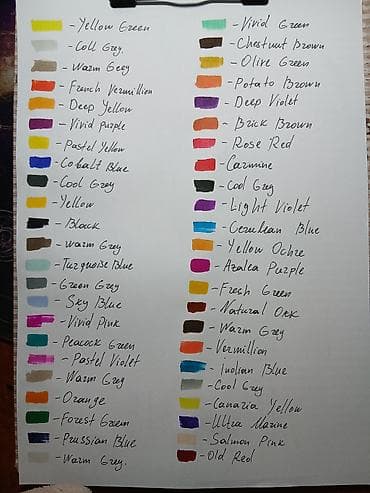 - Yellow Green
- Coll Grey.
- Warm Grey
- French Vermillion
- Deep Yellow
- Vivid purple
- Pastel Yellow
- Cobalt Blue
- Cool Grey
- Yellow
- Black
- Warm Grey
- Turquoise Blue
- Green Grey
- Sky Blue
- Vivid Pink
- Peacock Green
- Pastel Violet
- Warm Grey
- Orange
- Forest Green
- Prussian Blue
- Warm Grey.
- Vivid Green
- Chestnut Brown
- Olive Green
- Potato Brown
- Deep Violet
- Brick Brown
- Rose Red
- Carmine
- Cool Grey
- Light Violet
- Cerulean Blue
- Yellow Ochre
- Azalea Purple
- Fresh Green
- Natural Oak
- Warm Grey
- Vermillion
- Indian Blue
- Cool Grey
- Canaria Yellow
- Ultra Marine
- Salmon Pink
- Old Red